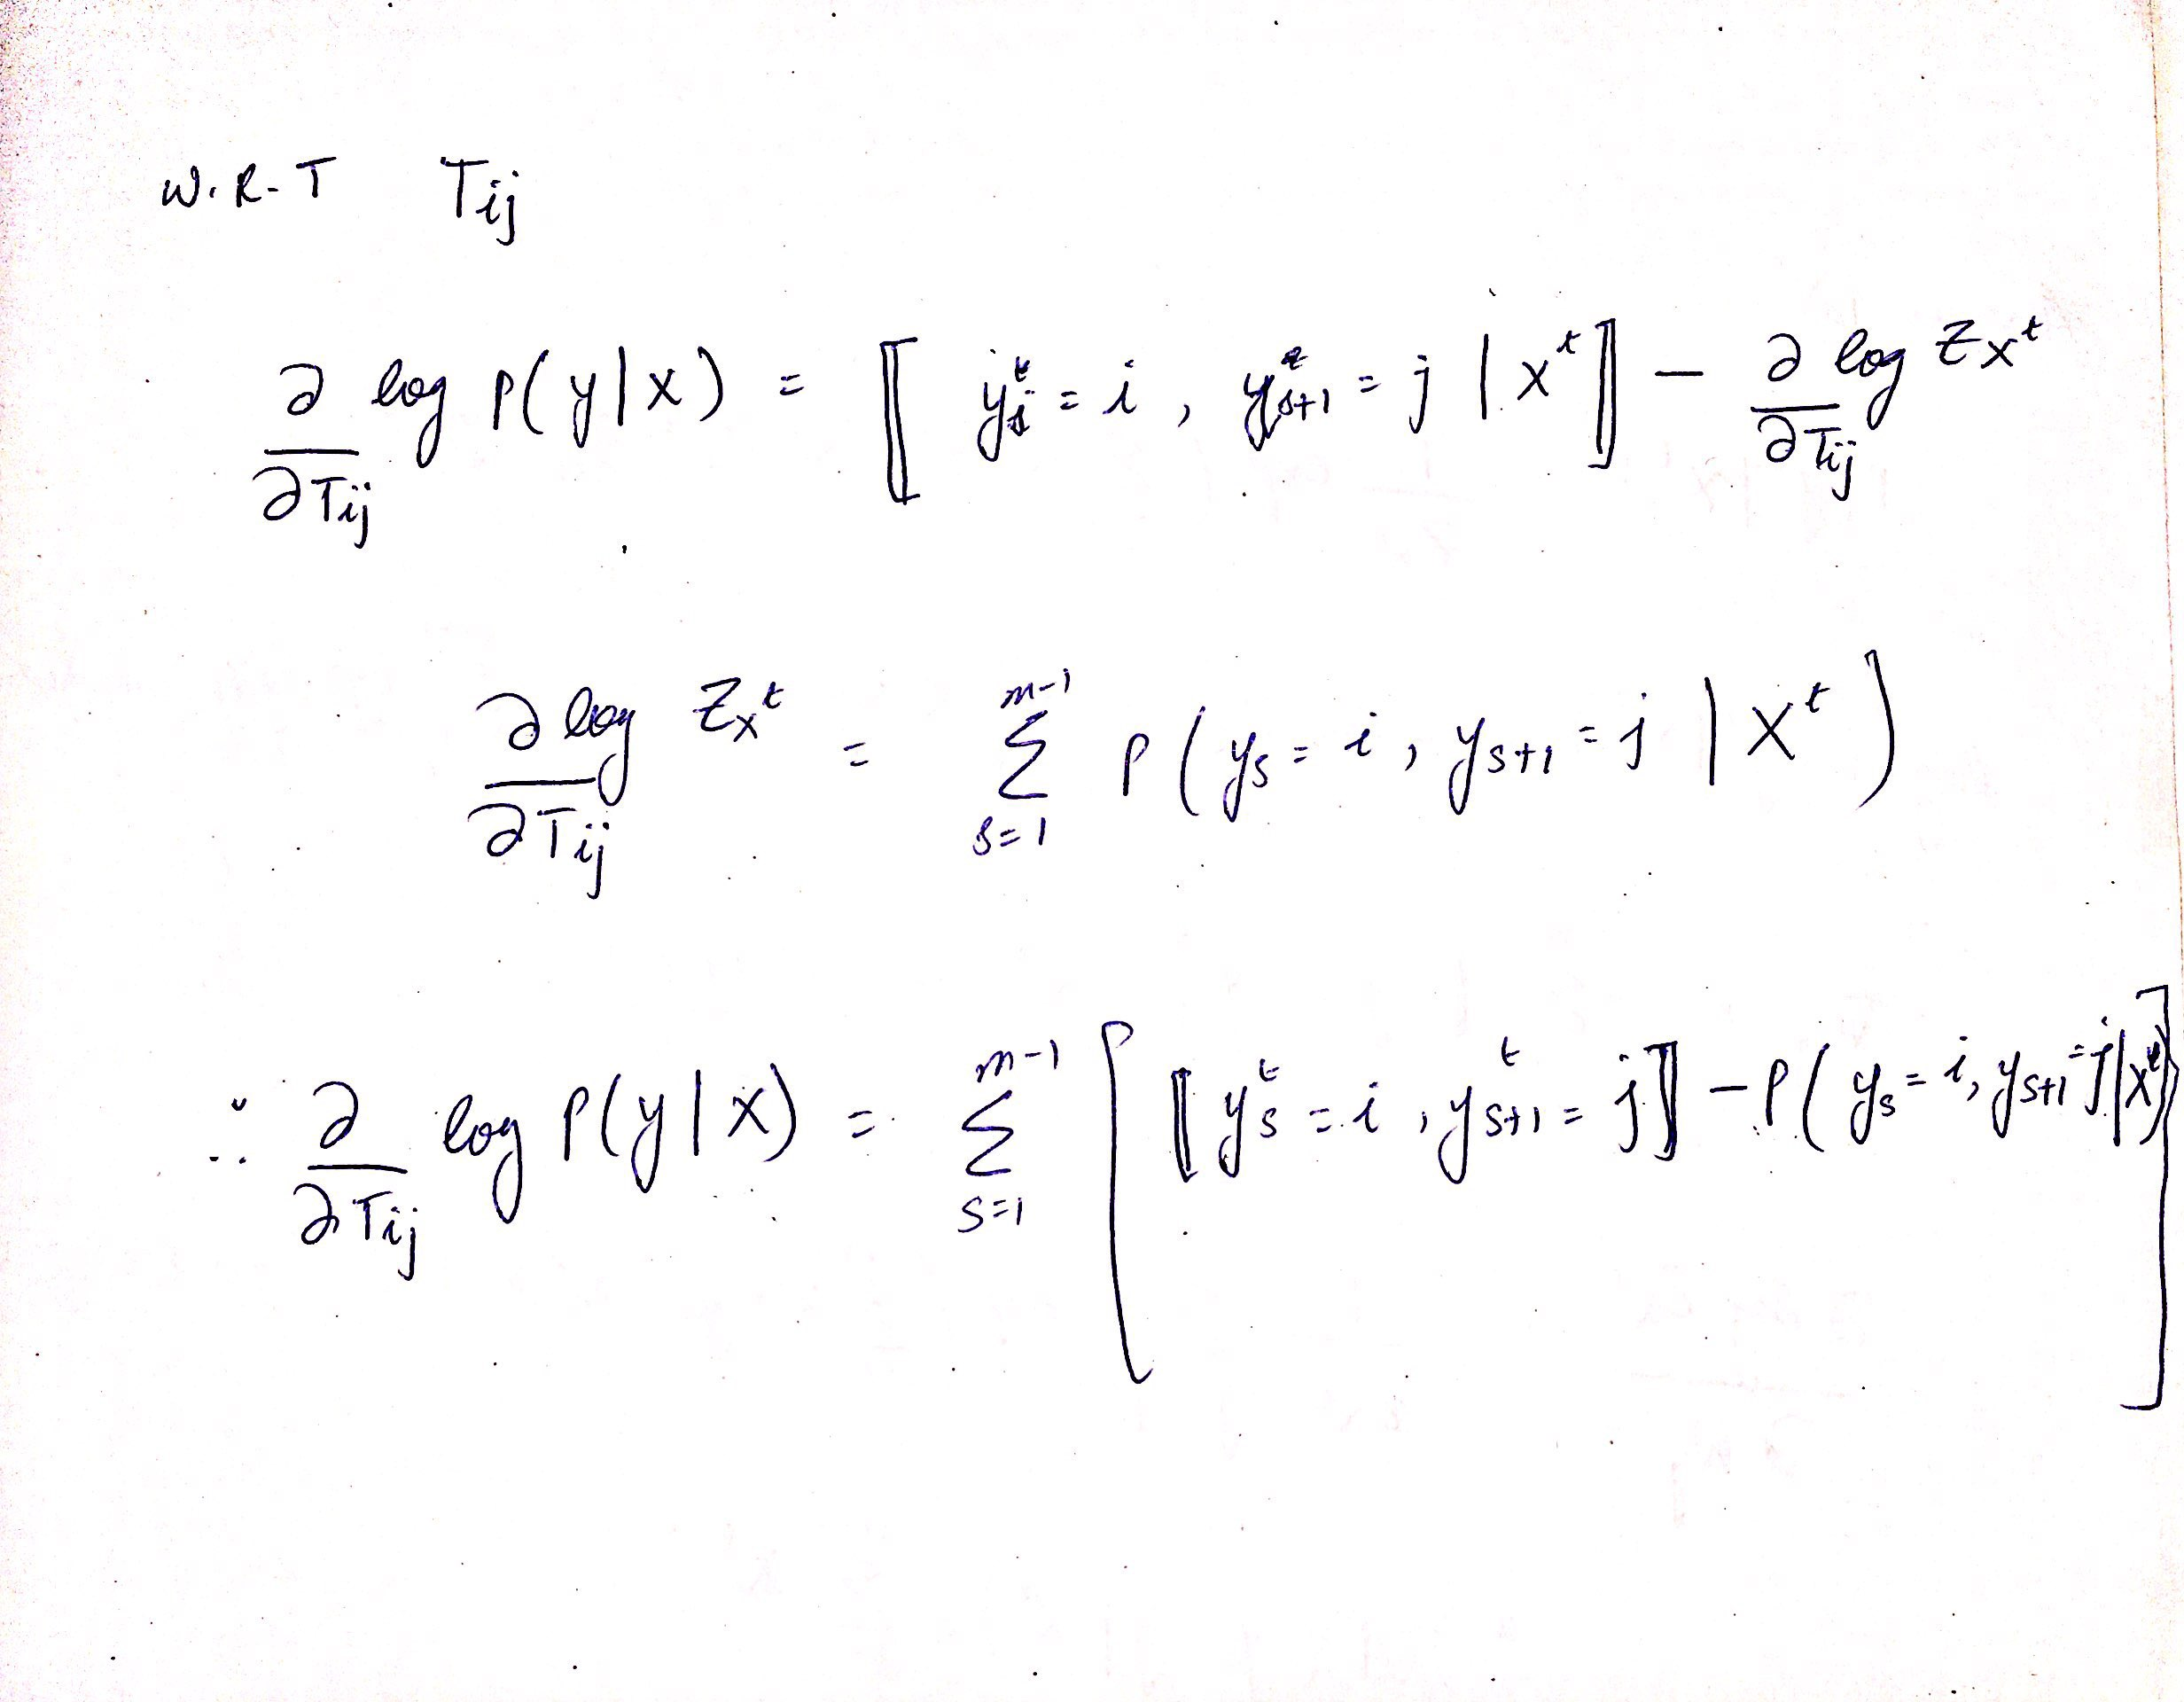 W.R.T Tij
∂/∂Tij log P(y|x) = ⟦ y_s^t = i, y_{s+1}^t = j | x^t ⟧ − ∂ log Z_{x^t} / ∂Tij
∂ log Z_{x^t} / ∂Tij = Σ_{s=1}^{m-1} P( y_s = i, y_{s+1} = j | x^t )
∴ ∂/∂Tij log P(y|x) = Σ_{s=1}^{m-1} [ ⟦ y_s^t = i, y_{s+1}^t = j ⟧ − P( y_s = i, y_{s+1} = j | x^t ) ]